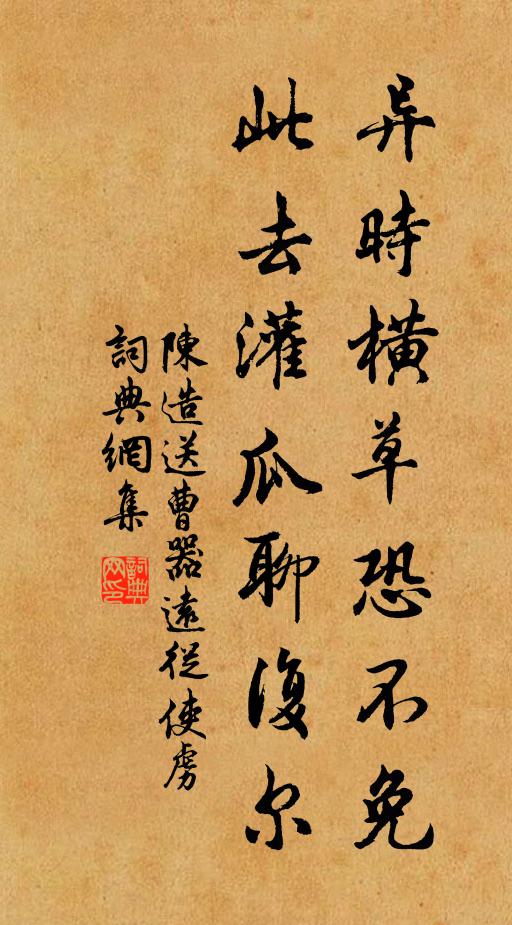 异時橫草恐不免
此去灌瓜聊復尔
陳造送曹器遠從使虜
詞典網集
詞典网印